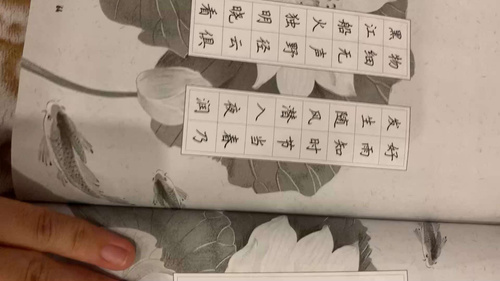 好雨知时节当春乃
发生随风潜入夜润
物细无声野径云俱
黑江船火独明晓看